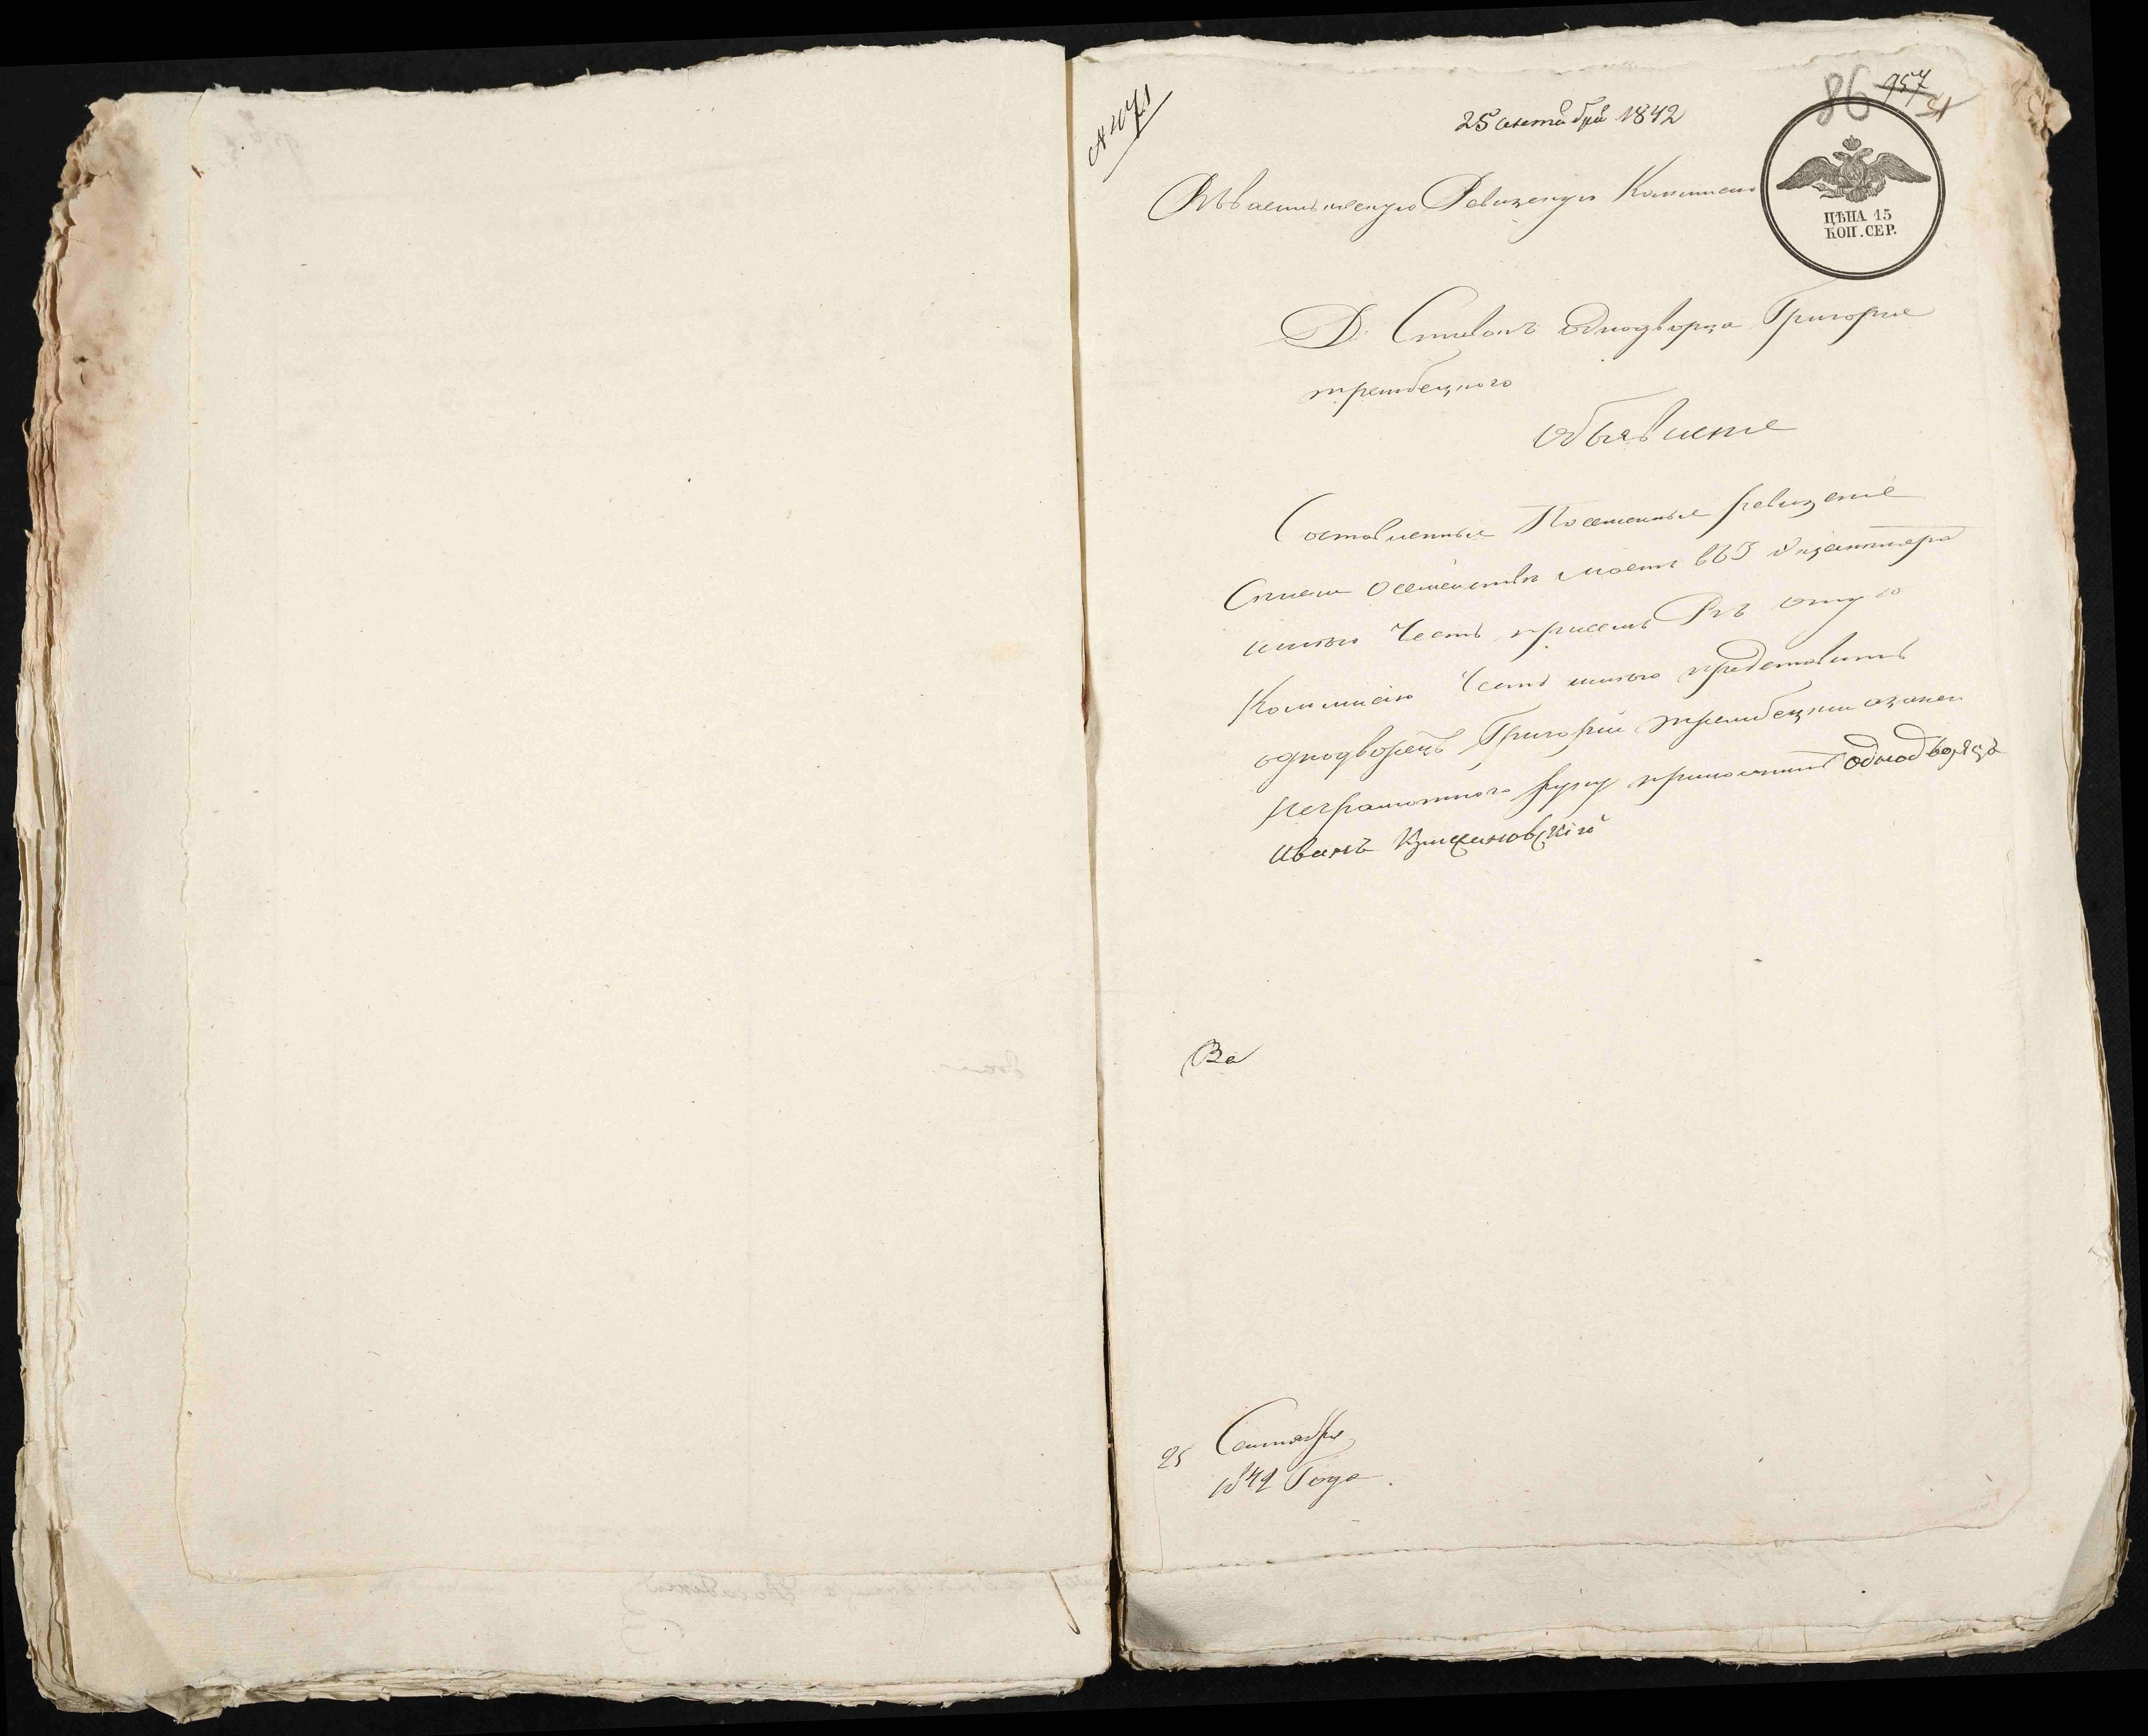 25 октября 1842
86 957
ЦѢНА 15
КОП. СЕР.
Ревизскую Комисию
Д. Однодворца Григорие
трембецкого
объявленіе
Составленные Посемейные ревизские
Списки о семействе моем в 3 Экземпляра
имею Честь при сем Въ оную
Коммисію Честь имею представить
однодворец Григорій трембецкий а за него
неграмотного руку приложил однодворецъ
Иванъ
Ва
25 Сентября
1842 Года.